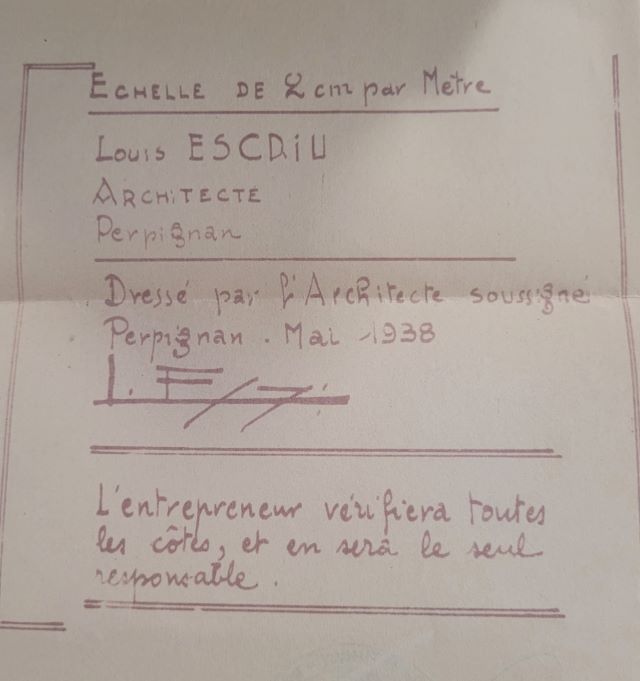 ECHELLE DE 2 cm par Mètre
Louis ESCDiU
ARCHiTECTE
Perpignan
Dressé par l'Architecte soussigné
Perpignan . Mai 1938
L'entrepreneur vérifiera toutes
les côtes, et en sera le seul
responsable .